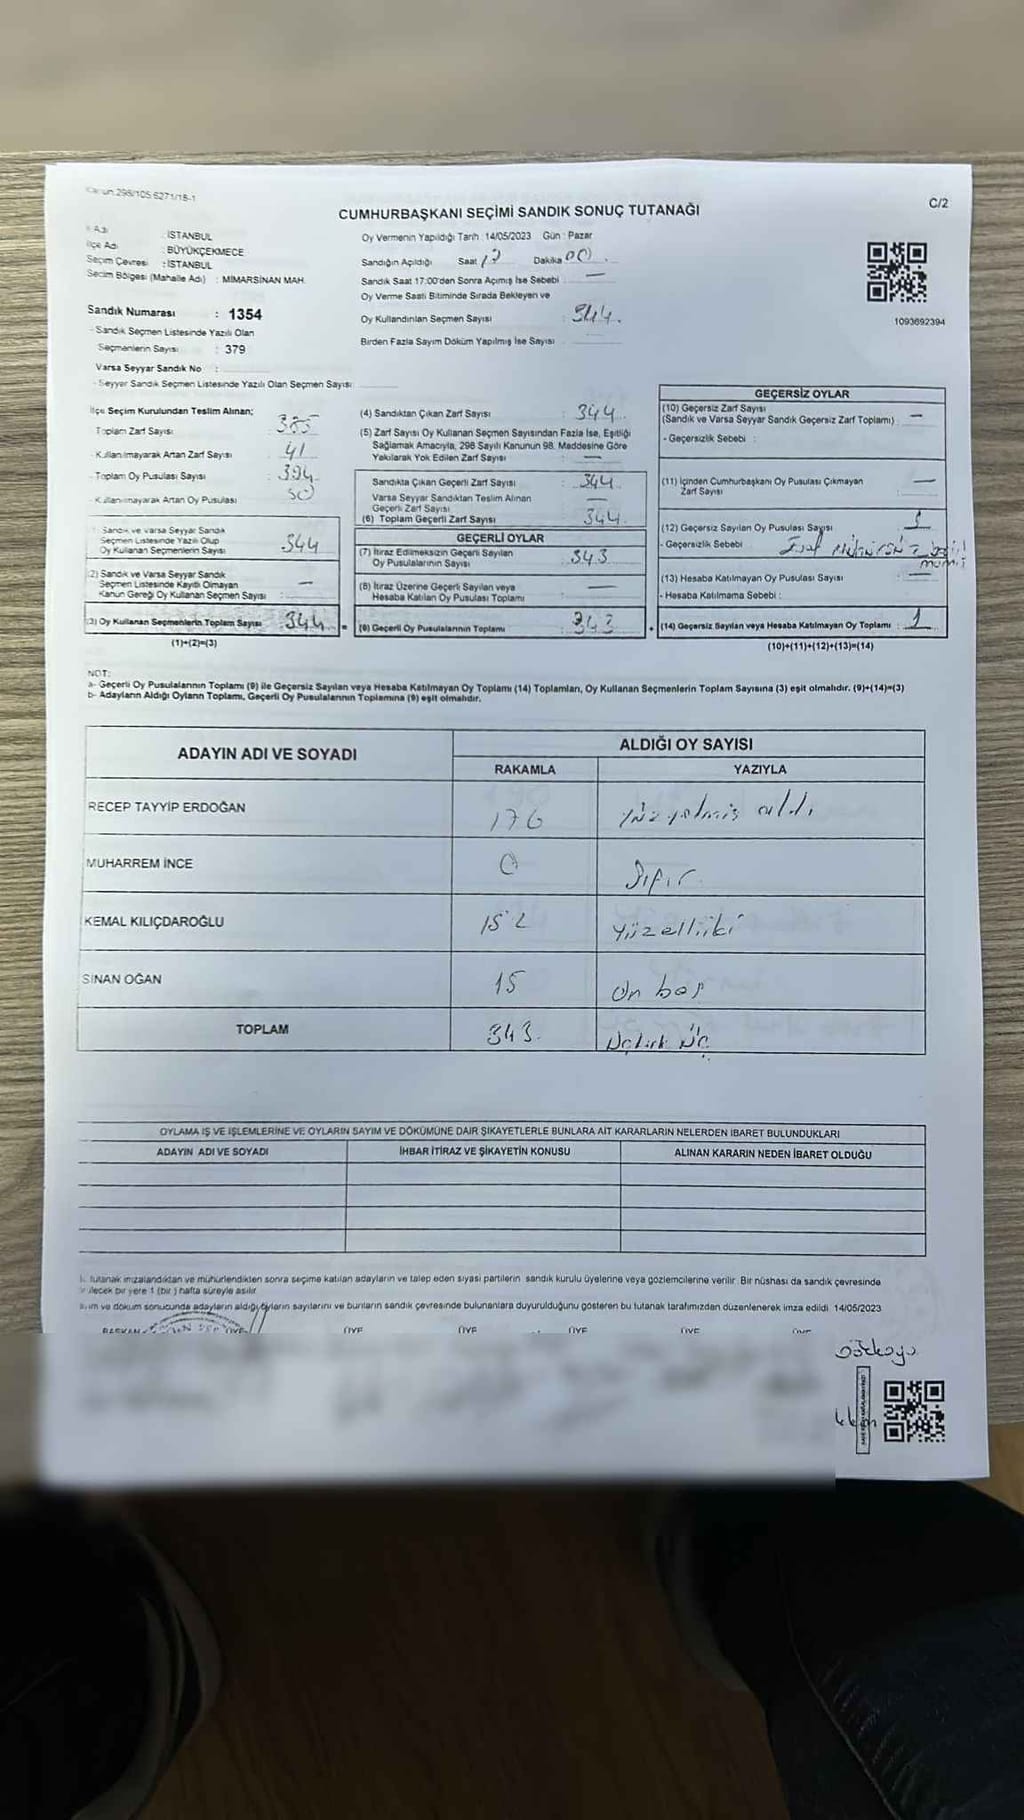 C/2
CUMHURBAŞKANI SEÇİMİ SANDIK SONUÇ TUTANAĞI
: İSTANBUL
İlçe Adı : BÜYÜKÇEKMECE
Seçim Çevresi : İSTANBUL
Seçim Bölgesi (Mahalle Adı) : MİMARSİNAN MAH.
Sandık Numarası : 1354
- Sandık Seçmen Listesinde Yazılı Olan
Seçmenlerin Sayısı : 379
Varsa Seyyar Sandık No :
- Seyyar Sandık Seçmen Listesinde Yazılı Olan Seçmen Sayısı
Oy Vermenin Yapıldığı Tarih : 14/05/2023 Gün : Pazar
Sandığın Açıldığı Saat Dakika 00
Sandık Saat 17:00'den Sonra Açılmış İse Sebebi : —
Oy Verme Saati Bitiminde Sırada Bekleyen ve
Oy Kullandırılan Seçmen Sayısı : 344.
Birden Fazla Sayım Döküm Yapılmış İse Sayısı :
1093692394
İlçe Seçim Kurulundan Teslim Alınan;
Toplam Zarf Sayısı : 385
- Kullanılmayarak Artan Zarf Sayısı : 41
- Toplam Oy Pusulası Sayısı : 394
- Kullanılmayarak Artan Oy Pusulası : 50
Sandık ve Varsa Seyyar Sandık
Seçmen Listesinde Yazılı Olup
Oy Kullanan Seçmenlerin Sayısı : 344
(2) Sandık ve Varsa Seyyar Sandık
Seçmen Listesinde Kayıtlı Olmayan
Kanun Gereği Oy Kullanan Seçmen Sayısı : —
(3) Oy Kullanan Seçmenlerin Toplam Sayısı : 344
(1)+(2)=(3)
(4) Sandıktan Çıkan Zarf Sayısı : 344
(5) Zarf Sayısı Oy Kullanan Seçmen Sayısından Fazla İse, Eşitliği
Sağlamak Amacıyla, 298 Sayılı Kanunun 98. Maddesine Göre
Yakılarak Yok Edilen Zarf Sayısı : —
Sandıkta Çıkan Geçerli Zarf Sayısı : 344
Varsa Seyyar Sandıktan Teslim Alınan
Geçerli Zarf Sayısı : —
(6) Toplam Geçerli Zarf Sayısı : 344
GEÇERLİ OYLAR
(7) İtiraz Edilmeksizin Geçerli Sayılan
Oy Pusulalarının Sayısı : 343
(8) İtiraz Üzerine Geçerli Sayılan veya
Hesaba Katılan Oy Pusulası Toplamı : —
(9) Geçerli Oy Pusulalarının Toplamı : 343
GEÇERSİZ OYLAR
(10) Geçersiz Zarf Sayısı
(Sandık ve Varsa Seyyar Sandık Geçersiz Zarf Toplamı) : —
- Geçersizlik Sebebi :
(11) İçinden Cumhurbaşkanı Oy Pusulası Çıkmayan
Zarf Sayısı : —
(12) Geçersiz Sayılan Oy Pusulası Sayısı : 1
- Geçersizlik Sebebi :
(13) Hesaba Katılmayan Oy Pusulası Sayısı : —
- Hesaba Katılmama Sebebi :
(14) Geçersiz Sayılan veya Hesaba Katılmayan Oy Toplamı : 1
(10)+(11)+(12)+(13)=(14)
NOT:
a- Geçerli Oy Pusulalarının Toplamı (9) ile Geçersiz Sayılan veya Hesaba Katılmayan Oy Toplamı (14) Toplamları, Oy Kullanan Seçmenlerin Toplam Sayısına (3) eşit olmalıdır. (9)+(14)=(3)
b- Adayların Aldığı Oyların Toplamı, Geçerli Oy Pusulalarının Toplamına (9) eşit olmalıdır.
ADAYIN ADI VE SOYADI
ALDIĞI OY SAYISI
RAKAMLA YAZIYLA
RECEP TAYYİP ERDOĞAN 176 yüz yetmiş altı
MUHARREM İNCE 0 Sıfır
KEMAL KILIÇDAROĞLU 152 yüzelliiki
SİNAN OĞAN 15 on beş
TOPLAM 343
OYLAMA İŞ VE İŞLEMLERİNE VE OYLARIN SAYIM VE DÖKÜMÜNE DAİR ŞİKAYETLERLE BUNLARA AİT KARARLARIN NELERDEN İBARET BULUNDUKLARI
ADAYIN ADI VE SOYADI İHBAR İTİRAZ VE ŞİKAYETİN KONUSU ALINAN KARARIN NEDEN İBARET OLDUĞU
tutanak imzalandıktan ve mühürlendikten sonra seçime katılan adayların ve talep eden siyasi partilerin sandık kurulu üyelerine veya gözlemcilerine verilir. Bir nüshası da sandık çevresinde
bir yere 1 (bir) hafta süreyle asılır
ve döküm sonucunda adayların aldığı oyların sayılarını ve bunların sandık çevresinde bulunanlara duyurulduğunu gösteren bu tutanak tarafımızdan düzenlenerek imza edildi 14/05/2023
BAŞKAN ÜYE ÜYE ÜYE ÜYE ÜYE ÜYE